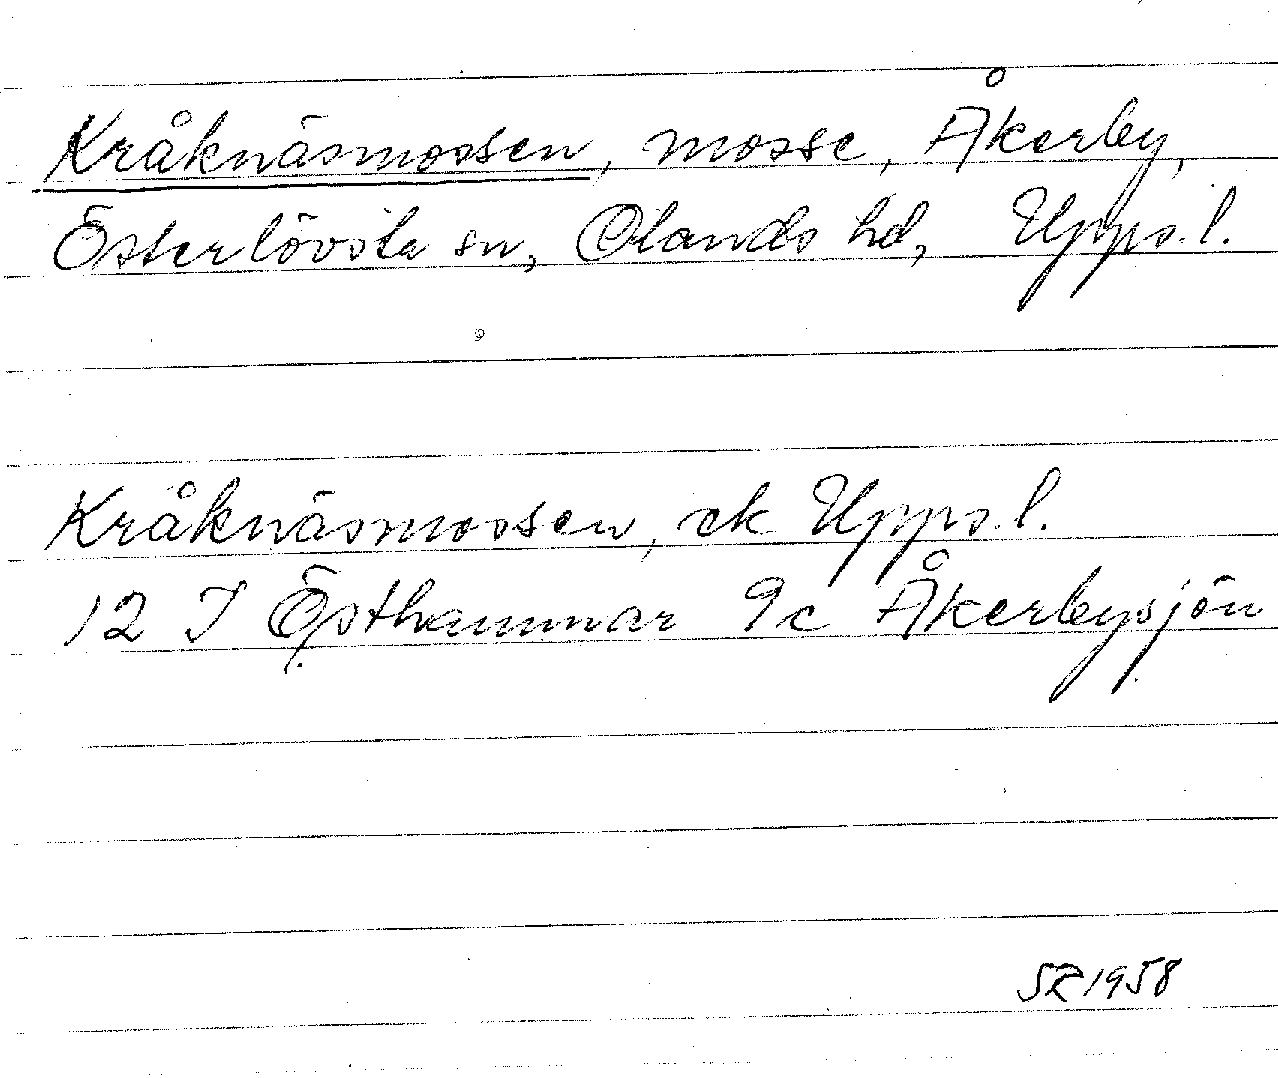 Kråknäsmossen, mosse, Åkerby,
Österlövsta sn, Olands hd, Upps. l.
Kråknäsmossen, ek Upps. l.
12 I Östhammar 9c Åkerbysjön
SR 1958